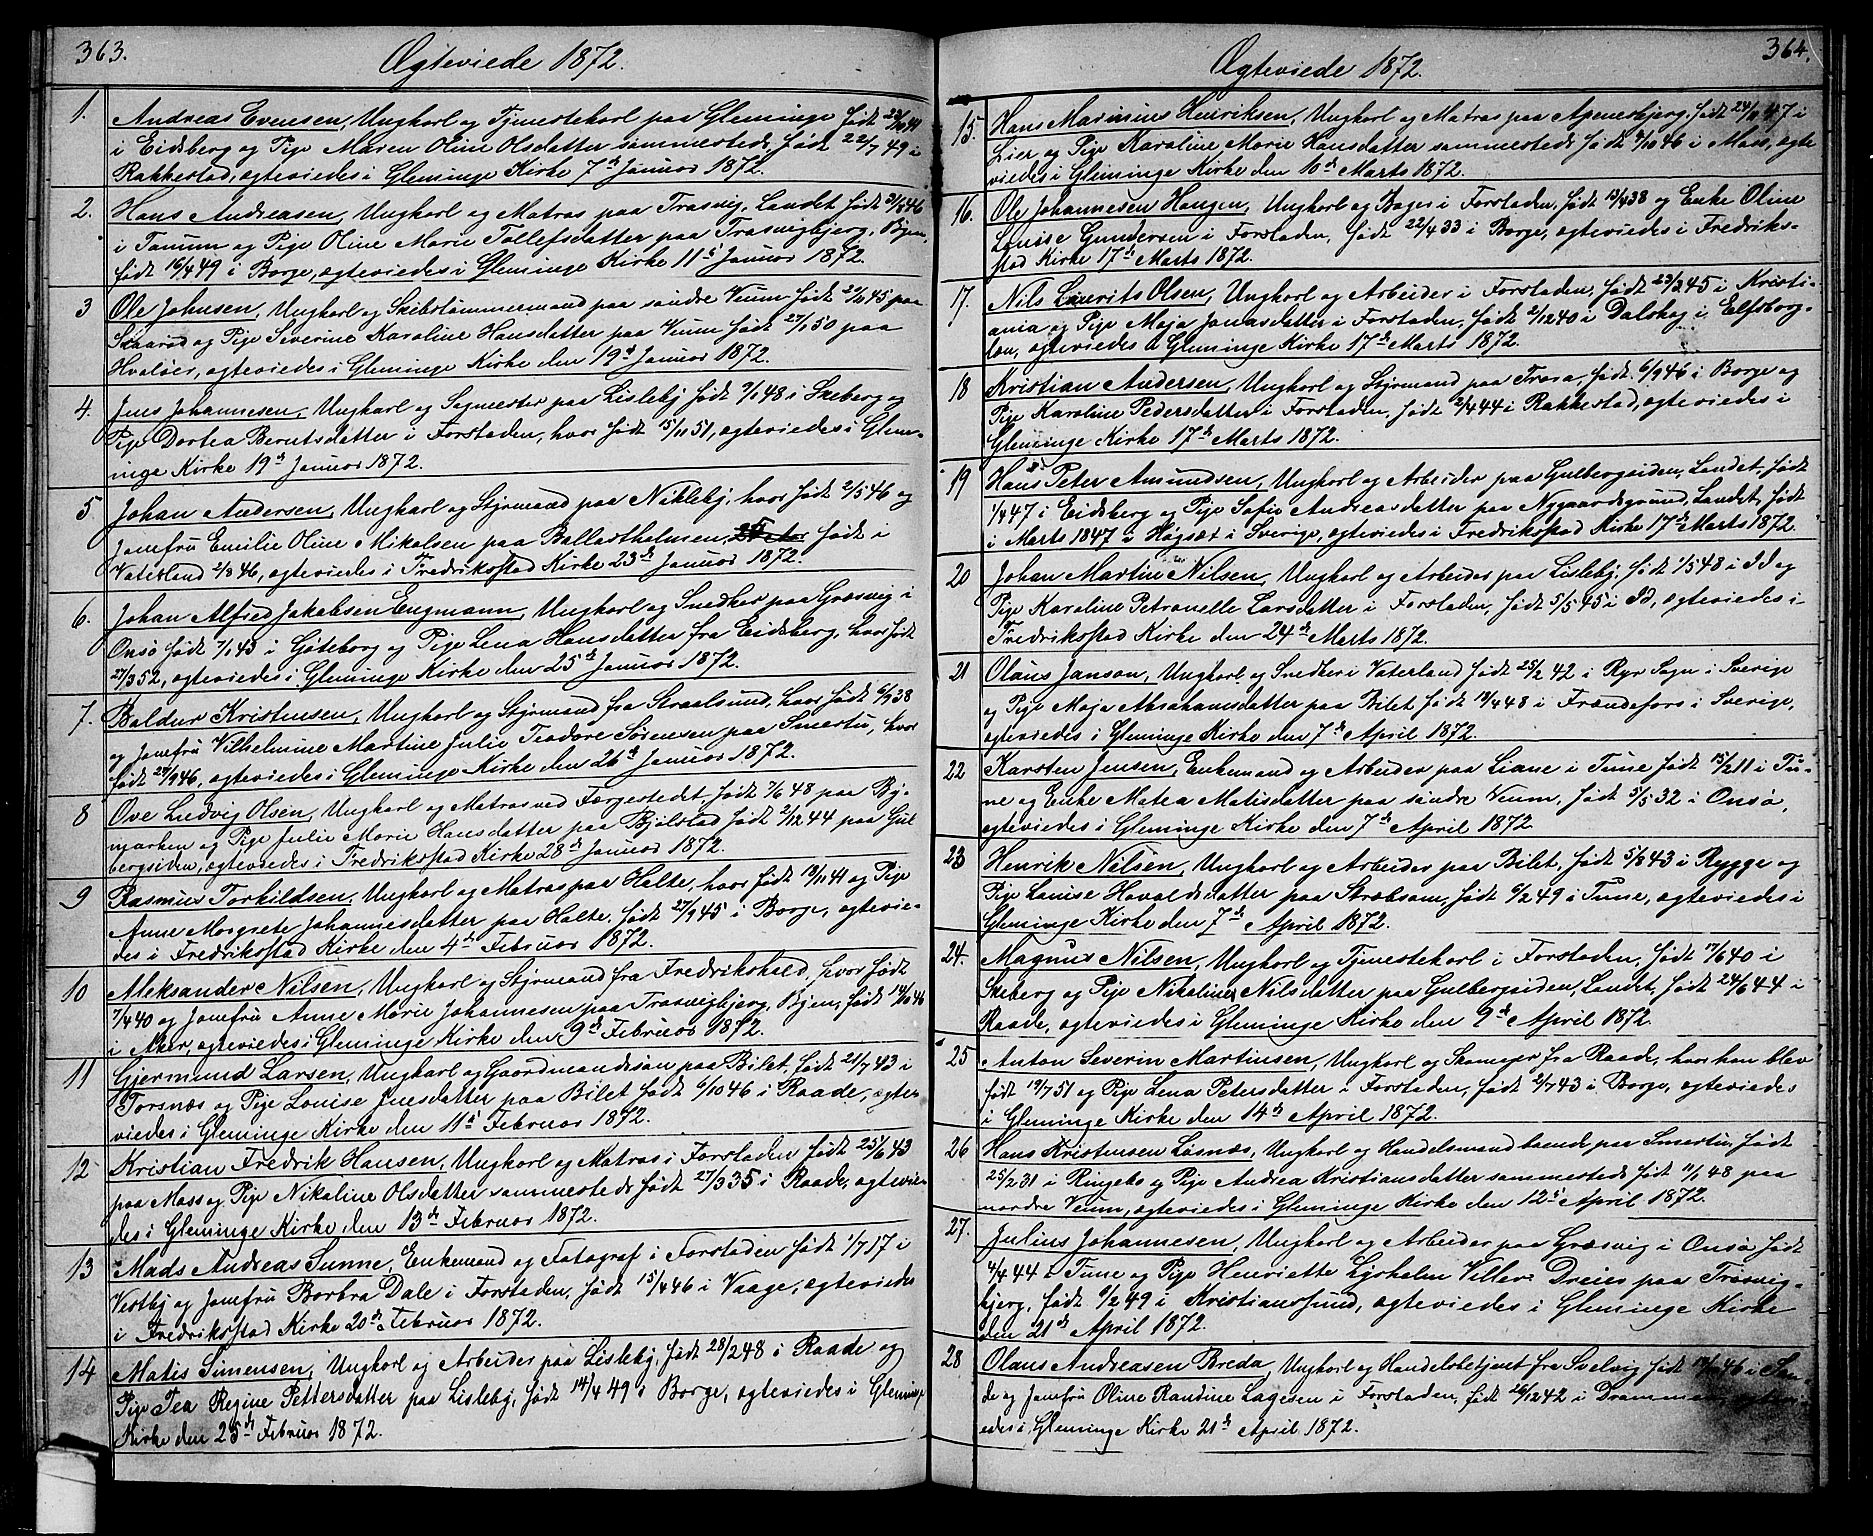 363.
Ægteviede 1872.
1. Andreas Evensen, Ungkarl og Tjenestekarl paa Gleminge født
i Eidsberg og Pige Maren Oline Olsdatter sammesteds, født 22/7 49 i
Rakkestad, ægteviedes i Gleminge Kirke 7de Januar 1872.
2. Hans Andreasen, Ungkarl og Matros paa Trasvig, Landet født
i Tanum og Pige Oline Marie Tollefsdatter paa Trasvigbjerg, Bjen,
født 16/4 49 i Borge, ægteviedes i Gleminge Kirke 11te Januar 1872.
3 Ole Johnsen, Ungkarl og Skibstømmermand paa søndre Veum født 45 paa
Skaarød og Pige Severine Karoline Hansdatter paa Veum født 27/1 50 paa
Hvaløer, ægteviedes i Gleminge Kirke den 19de Januar 1872.
4. Jens Johannesen, Ungkarl og Sagmester paa Lisleby født 9/1 48 i Skeberg og
Pige Dortea Berntsdatter i Forstaden, hvor født 15/11 51, ægteviedes i Glem-
inge Kirke 19de Januar 1872.
5 Johan Andersen, Ungkarl og Styrmand paa Nikleby, hvor født 2/5 46 og
Jomfru Emilie Oline Mikalsen paa Ballastholmen, født i
Vaterland 2/8 46, ægteviedes i Fredriksstad Kirke 23de Januar 1872.
6. Johan Alfred Jakobsen Engmann, Ungkarl og Snedker paa Græsvig i
Onsø født 7/1 43 i Gøteborg og Pige Lena Hansdatter fra Eidsberg, hvor født
27/3 52, ægteviedes i Gleminge Kirke den 25de Januar 1872.
7. Baldur Kristensen, Ungkarl og Styrmand fra Straalsund, hvor født 6/9 38
og Jomfru Vilhelmine Martine Julie Teodore Sørensen paa Smertu, hvor
født 29/9 46, ægteviedes i Gleminge Kirke den 26de Januar 1872.
8 Ove Ludvig Olsen, Ungkarl og Matros ved Færgestedet, født 7/6 48 paa Bj-
marken og Pige Julie Marie Hansdatter paa Bjølstad født 2/12 44 paa Gul
bergsiden, ægteviedes i Fredriksstad Kirke 28de Januar 1872.
9 Rasmus Torkildsen, Ungkarl og Matros paa Holte, hvor født 18/11 41 og Pige
Anne Margrete Johannesdatter paa Holte, født 27/9 45 i Borge, ægtevie-
des i Fredriksstad Kirke den 4de Februar 1872.
10 Aleksander Nilsen, Ungkarl og Styrmand fra Fredrikshald, hvor født
7/4 40 og Jomfru Anne Marie Johannesen paa Trasvigbjerg, Bjen, født 14/10 46
i Aker, ægteviedes i Gleminge Kirke den 9de Februar 1872.
11 Gjermund Larsen, Ungkarl og Gaardmandssøn paa Bilet, født 21/7 43 i
Torsnæs og Pige Louise Jensdatter paa Bilet født 6/10 46 i Raade, ægte-
viedes i Gleminge Kirke den 11te Februar 1872.
12 Kristian Fredrik Hansen, Ungkarl og Matros i Forstaden født 25/6 43
paa Moss og Pige Nikoline Olsdatter sammesteds født 27/3 35 i Raade, ægtevie-
des i Gleminge Kirke den 13de Februar 1872.
13 Mads Andreas Sunne, Enkemand og Fotograf i Forstaden født 1/7 17 i
Vestby og Jomfru Barbra Dale i Forstaden, født 15/4 46 i Vaage, ægteviedes
i Fredriksstad Kirke 20de Februar 1872.
14 Matis Simensen, Ungkarl og Arbeider paa Lisleby, født 28/2 48 i Raade og
Pige Tea Regine Pettersdatter paa Lisleby, født 14/4 49 i Borge, ægteviedes i Gleminge
Kirke den 25de Februar 1872.
364.
Ægteviede 1872.
15. Hans Marinius Henriksen, Ungkarl og Matros paa Apenesbjerg, født 47 i
Lier og Pige Karoline Marie Hansdatter sammesteds født 4/10 46 i Moss, ægte
viedes i Gleminge Kirke den 10de Marts 1872.
16. Ole Johannesen Haugen, Ungkarl og Bager i Forstaden, født 13/4 38 og Enke Oline
Louise Gundersen i Forstaden, født 22/4 33 i Borge, ægteviedes i Fredriks-
stad Kirke 17de Marts 1872.
17. Nils Laurits Olsen, Ungkarl og Arbeider i Forstaden, født 23/2 45 i Kristi-
ania og Pige Maja Jonasdatter i Forstaden, født 2/12 40 i Dalskog i Elfsborg-
len, ægteviedes i Gleminge Kirke 17de Marts 1872.
18 Kristian Andersen, Ungkarl og Styrmand paa Trara, født 6/9 46 i Borge og
Pige Karoline Pedersdatter i Forstaden, født 2/4 44 i Rakkestad, ægteviedes i
Gleminge Kirke 17de Marts 1872.
19 Hans Peter Amundsen, Ungkarl og Arbeider paa Gulbergsiden, Landet, født
1/4 47 i Eidsberg og Pige Sofie Andreasdatter paa Nygaardsgrund, Landet, født
i Marts 1847 i Høgsæt i Sverige, ægteviedes i Fredriksstad Kirke 17de Marts 1872.
20 Johan Martin Nilsen, Ungkarl og Arbeider paa Lisleby, født 1/5 48 i Id og
Pige Karoline Petronelle Larsdatter i Forstaden, født 5/5 45 i Id, ægteviedes i
Fredriksstad Kirke den 24de Marts 1872.
21 Olaus Janson, Ungkarl og Snedker i Vaterland født 25/2 42 i Ryr Sogn i Sverige
og Pige Maja Abrahamsdatter paa Bilet født 18/4 48 i Frændefors i Sverige,
ægteviedes i Gleminge Kirke den 7de April 1872.
22 Karsten Jensen, Enkemand og Arbeider paa Liane i Tune født 15/2 11 i Tu-
ne og Enke Matea Matisdatter paa søndre Veum, født 5/5 32 i Onsø,
ægteviedes i Gleminge Kirke den 7de April 1872
23 Henrik Nilsen, Ungkarl og Arbeider paa Bilet, født 5/8 43 i Rygge og
Pige Louise Havaldsdatter paa Stræbsom, født 9/2 49 i Tune, ægteviedes i
Gleminge Kirke den 7de April 1872.
24. Magnus Nilsen, Ungkarl og Tjenestekarl i Forstaden, født 17/6 40 i
Skeberg og Pige Nikoline Nilsdatter paa Gulbergsiden, Landet, født 24/6 44 i
Raade, ægteviedes i Gleminge Kirke den 9de April 1872.
25 Anton Severin Martinsen, Ungkarl og Skomager fra Raade, hvor han blev
født 19/7 51 og Pige Lena Petersdatter i Forstaden, født 2/7 43 i Borge, ægteviedes
i Gleminge Kirke den 14de April 1872.
26 Hans Kristensen Løsnæs, Ungkarl og Handelsmand boende paa Smertu, født
25/2 31 i Ringebo og Pige Andrea Kristiansdatter sammesteds født 11/1 48 paa
nordre Veum, ægteviedes i Gleminge Kirke den 12te April 1872.
27. Julius Johannesen, Ungkarl og Arbeider paa Græsvig i Onsø født
4/4 44 i Tune og Pige Henriette Lyrholm Viller Dreier paa Trasvig-
bjerg, født 9/2 49 i Kristianssund, ægteviedes i Gleminge Kirke
den 21de April 1872.
28 Olaus Andreasen Breda, Ungkarl og Handelsbetjent fra Svelvig født 46 i San-
de og Jomfru Oline Randine Lagesen i Forstaden, født 26/12 42 i Drammen, ægtevi-
edes i Gleminge Kirke 21de April 1872.